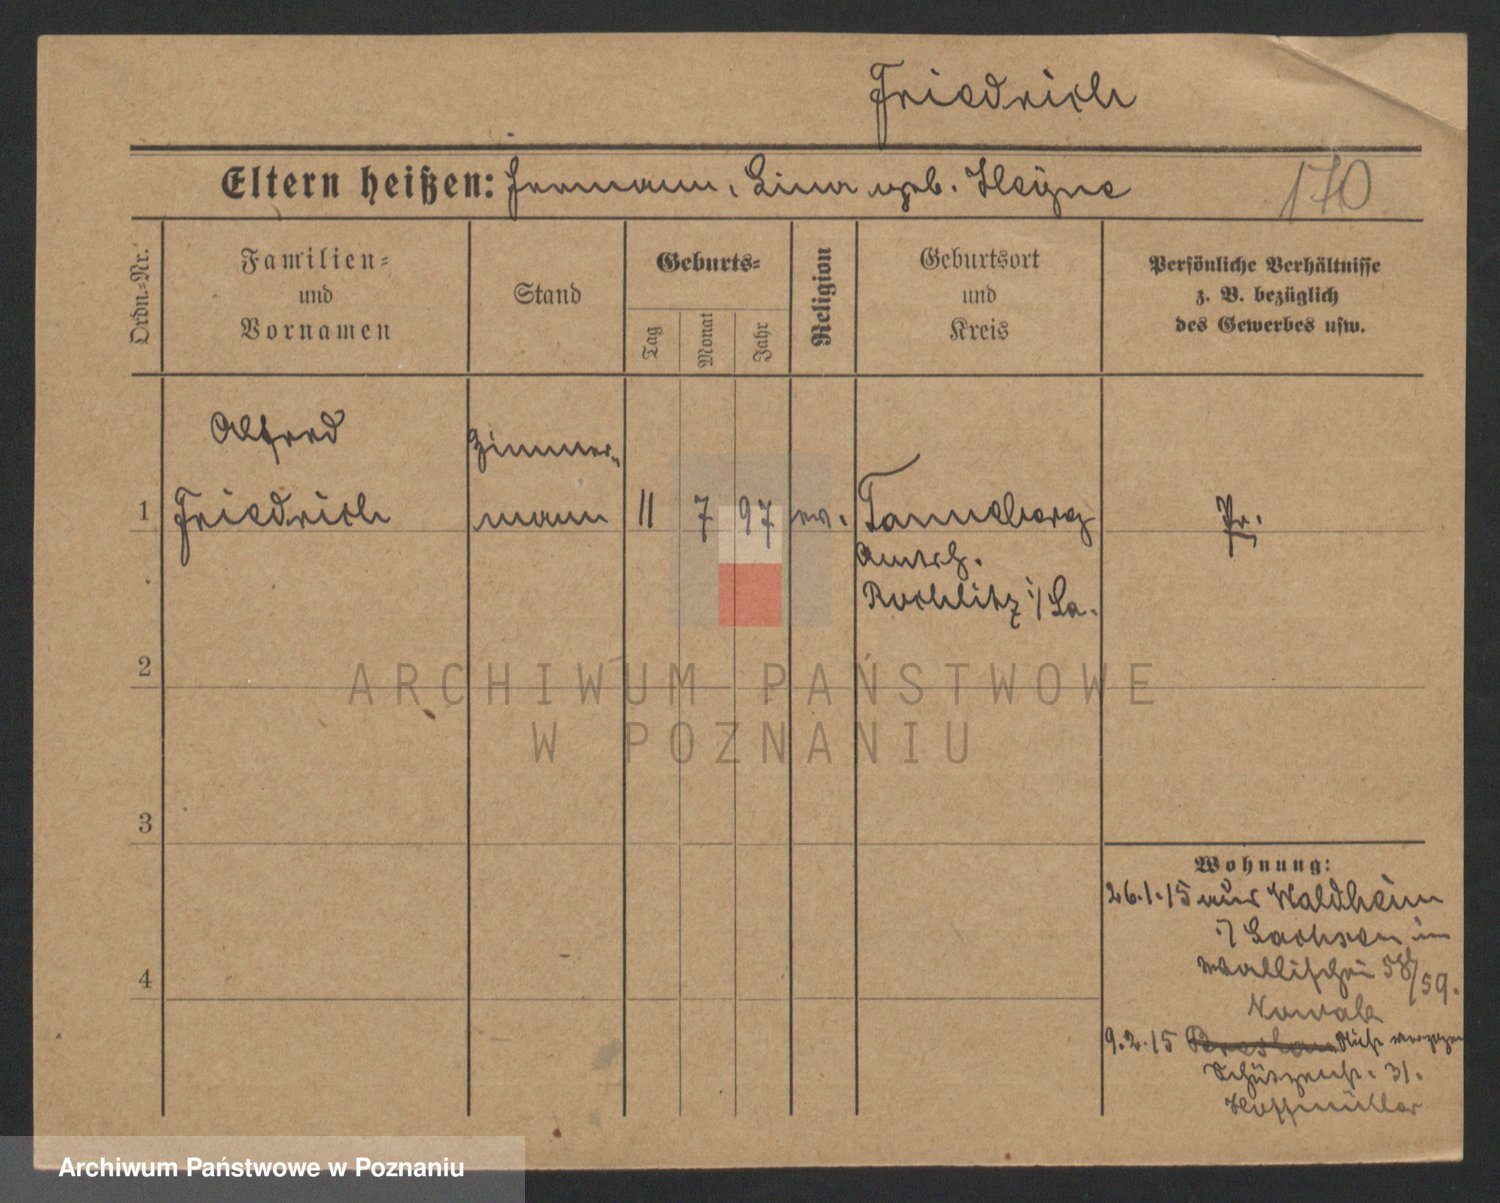 Friedrich
Eltern heißen: Hermann, Lina geb. Heyne
170
Ordn.-Nr.
Familien-
und
Vornamen
Stand
Geburts-
Tag
Monat
Jahr
Religion
Geburtsort
und
Kreis
Persönliche Verhältnisse
z. B. bezüglich
des Gewerbes usw.
Alfred
Friedrich
Zimmer-
mann
1
11
7
97
ev.
Tanneberg
Amtsh.
Rochlitz i/Sa.
Pr.
2
3
4
Wohnung:
26.1.15 aus Waldheim
i/ Sachsen in
Wallischei 58/59.
Nowak
9.2.15 Breslau verzogen
Schützenstr. 31.
Hoffmüller
ARCHIWUM PAŃSTWOWE
W POZNANIU
Archiwum Państwowe w Poznaniu